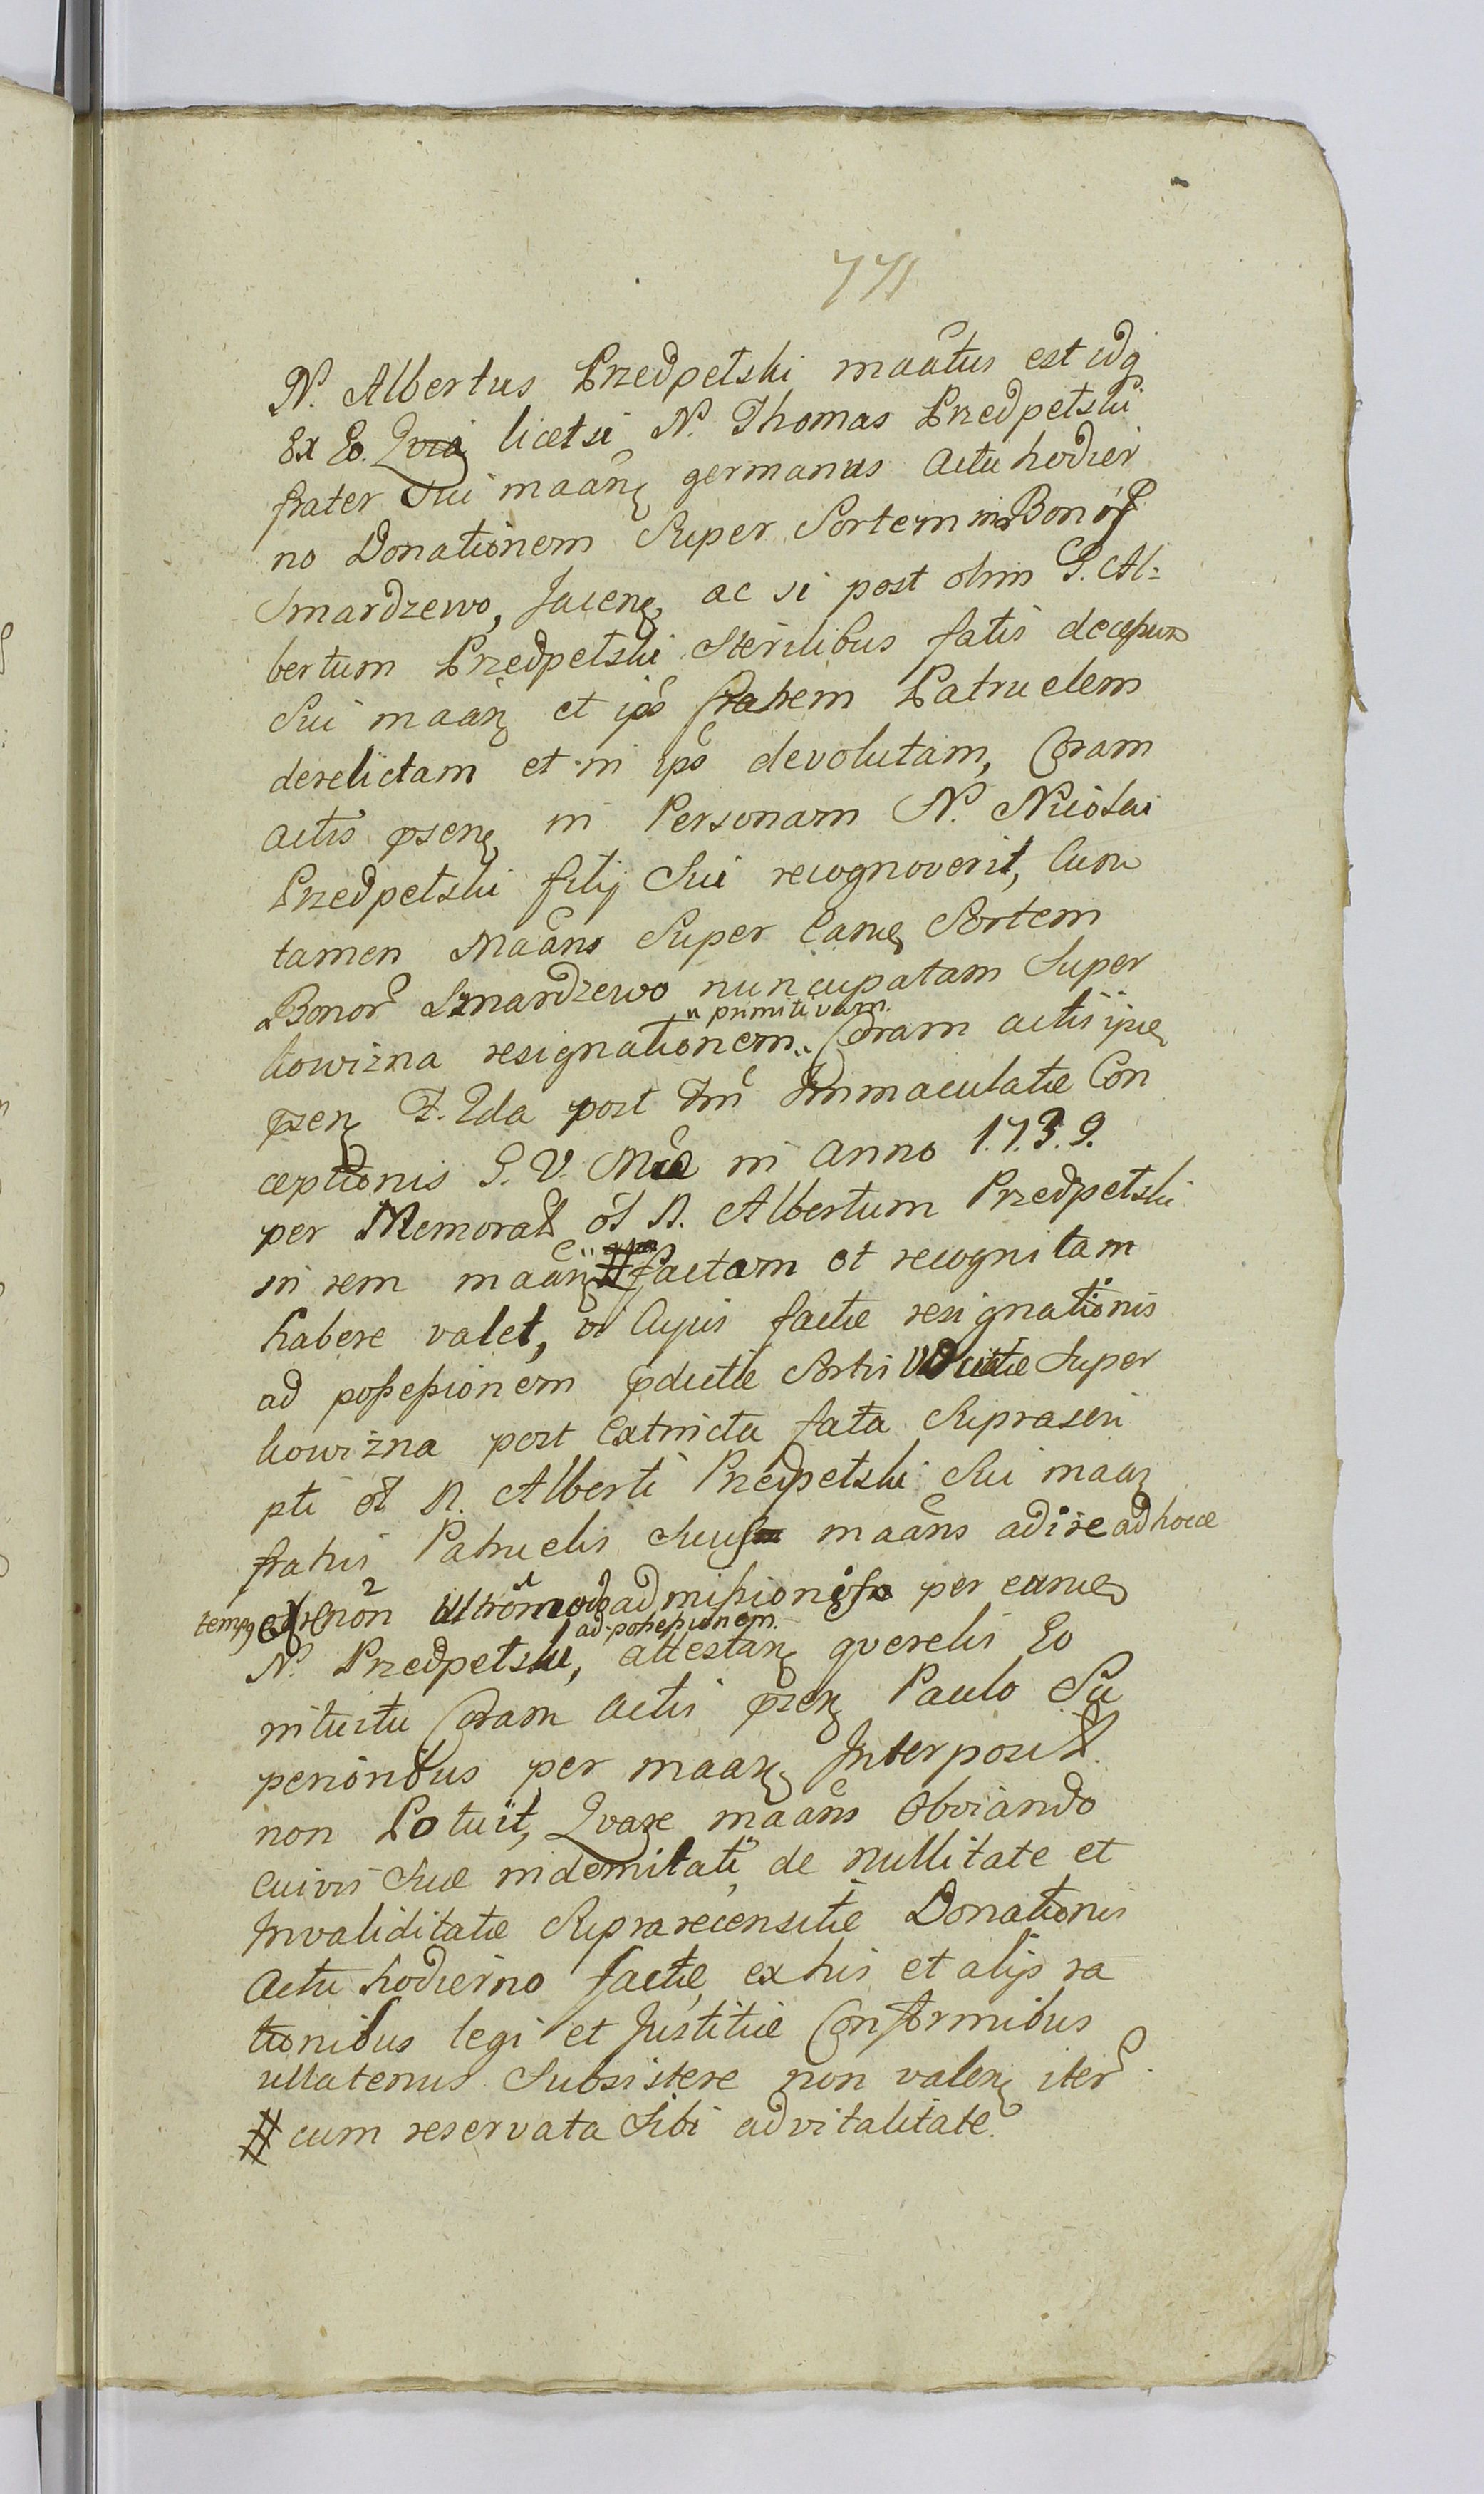 771
N. Albertus Przedpełski maãtus est idq
Ex Eo. Qvia licet si N. Thomas Przedpełski
frater Sui maãn germanus Actu hodier
no Donationem Super Sortem in Bonor
Smardzewo, Jacen, ac si post olim G. Al=
bertum Przedpełski Sterilibus fatis decessum
Sui maan et ips fratrem Patruelem
derelictam et in ips devolutam, Coram
actis psen in Personam N. Nicolai
Przedpełski filij Sui recognoverit, Cum
tamen Maãns Super Eand Sortem
Bonor Smardzewo nuncupatam Super
" primitivam.
kowizna resignationem " Coram actis ijsd
psen F. 2da post Fm Immaculatæ Con
ceptionis B. V. Mæ in Anno 1.7.3.9.
per Memorat ol N. Albertum Przedpełski
in rem maãn # factam et recognitam
habere valet, vi Cujus factæ resignationis
ad possessionem pdictæ Sortis Vocitatæ Super
kowizna post Extincta fata Suprascri
pti ol N. Alberti Przedpełski Sui maan
fratris Patruelis Sui maãns adire ad hocce
tempq non admission per eund
ad possessionem.
N. Przedpełski, attestan qverelis Eo
intuitu Coram Actis psen Paulo Su
perioribus per maan Interposit.
non Potuit, Qvare maãns Obviando
cuivis Suæ indemnitati, de nullitate et
Invaliditate Suprarecensitæ Donationis
Actu hodierno factæ, ex his et alijs ra
tionibus legi et Justitiæ Conformibus
ullatenus Subsistere non valen iter
# cum reservata Sibi advitalitate.